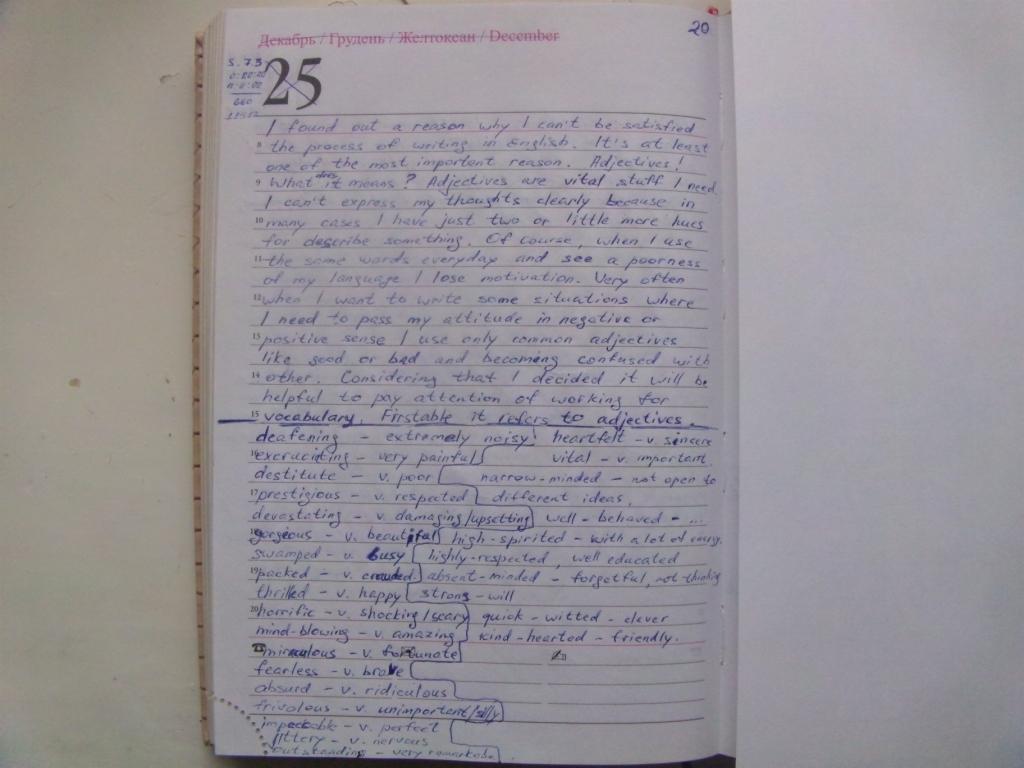 20
Декабрь / Грудень / Желтоксан / December
S. 73
25
660
I found out a reason why I can't be satisfied
8 the process of writing in English. It's at least
one of the most important reason. Adjectives!
9 What does it means? Adjectives are vital stuff I need.
I can't express my thoughts clearly because in
10 many cases I have just two or little more hues
for describe something. Of course, when I use
11 the same words everyday and see a poorness
of my language I lose motivation. Very often
12 when I want to write some situations where
I need to pass my attitude in negative or
13 positive sense I use only common adjectives
like good or bad and becoming confused with
14 other. Considering that I decided it will be
helpful to pay attention of working for
15 vocabulary. Firstable it refers to adjectives.
deafening - extremely noisy heartfelt - v. sincere
16 excruciating - very painful vital - v. important.
destitute - v. poor narrow-minded - not open to
17 prestigious - v. respected different ideas.
devastating - v. damaging/upsetting well-behaved - ...
18 gorgeous - v. beautiful high-spirited - with a lot of energy.
swamped - v. busy highly-respected, well educated
19 packed - v. crowded. absent-minded - forgetful, not thinking
thrilled - v. happy strong-will
20 horrific - v. shocking/scary quick-witted - clever
mind-blowing - v. amazing kind-hearted - friendly.
miraculous - v. fortunate
fearless - v. brave
absurd - v. ridiculous
frivolous - v. unimportant/silly
impeccable - v. perfect
jittery - v. nervous
outstanding - very remarkable